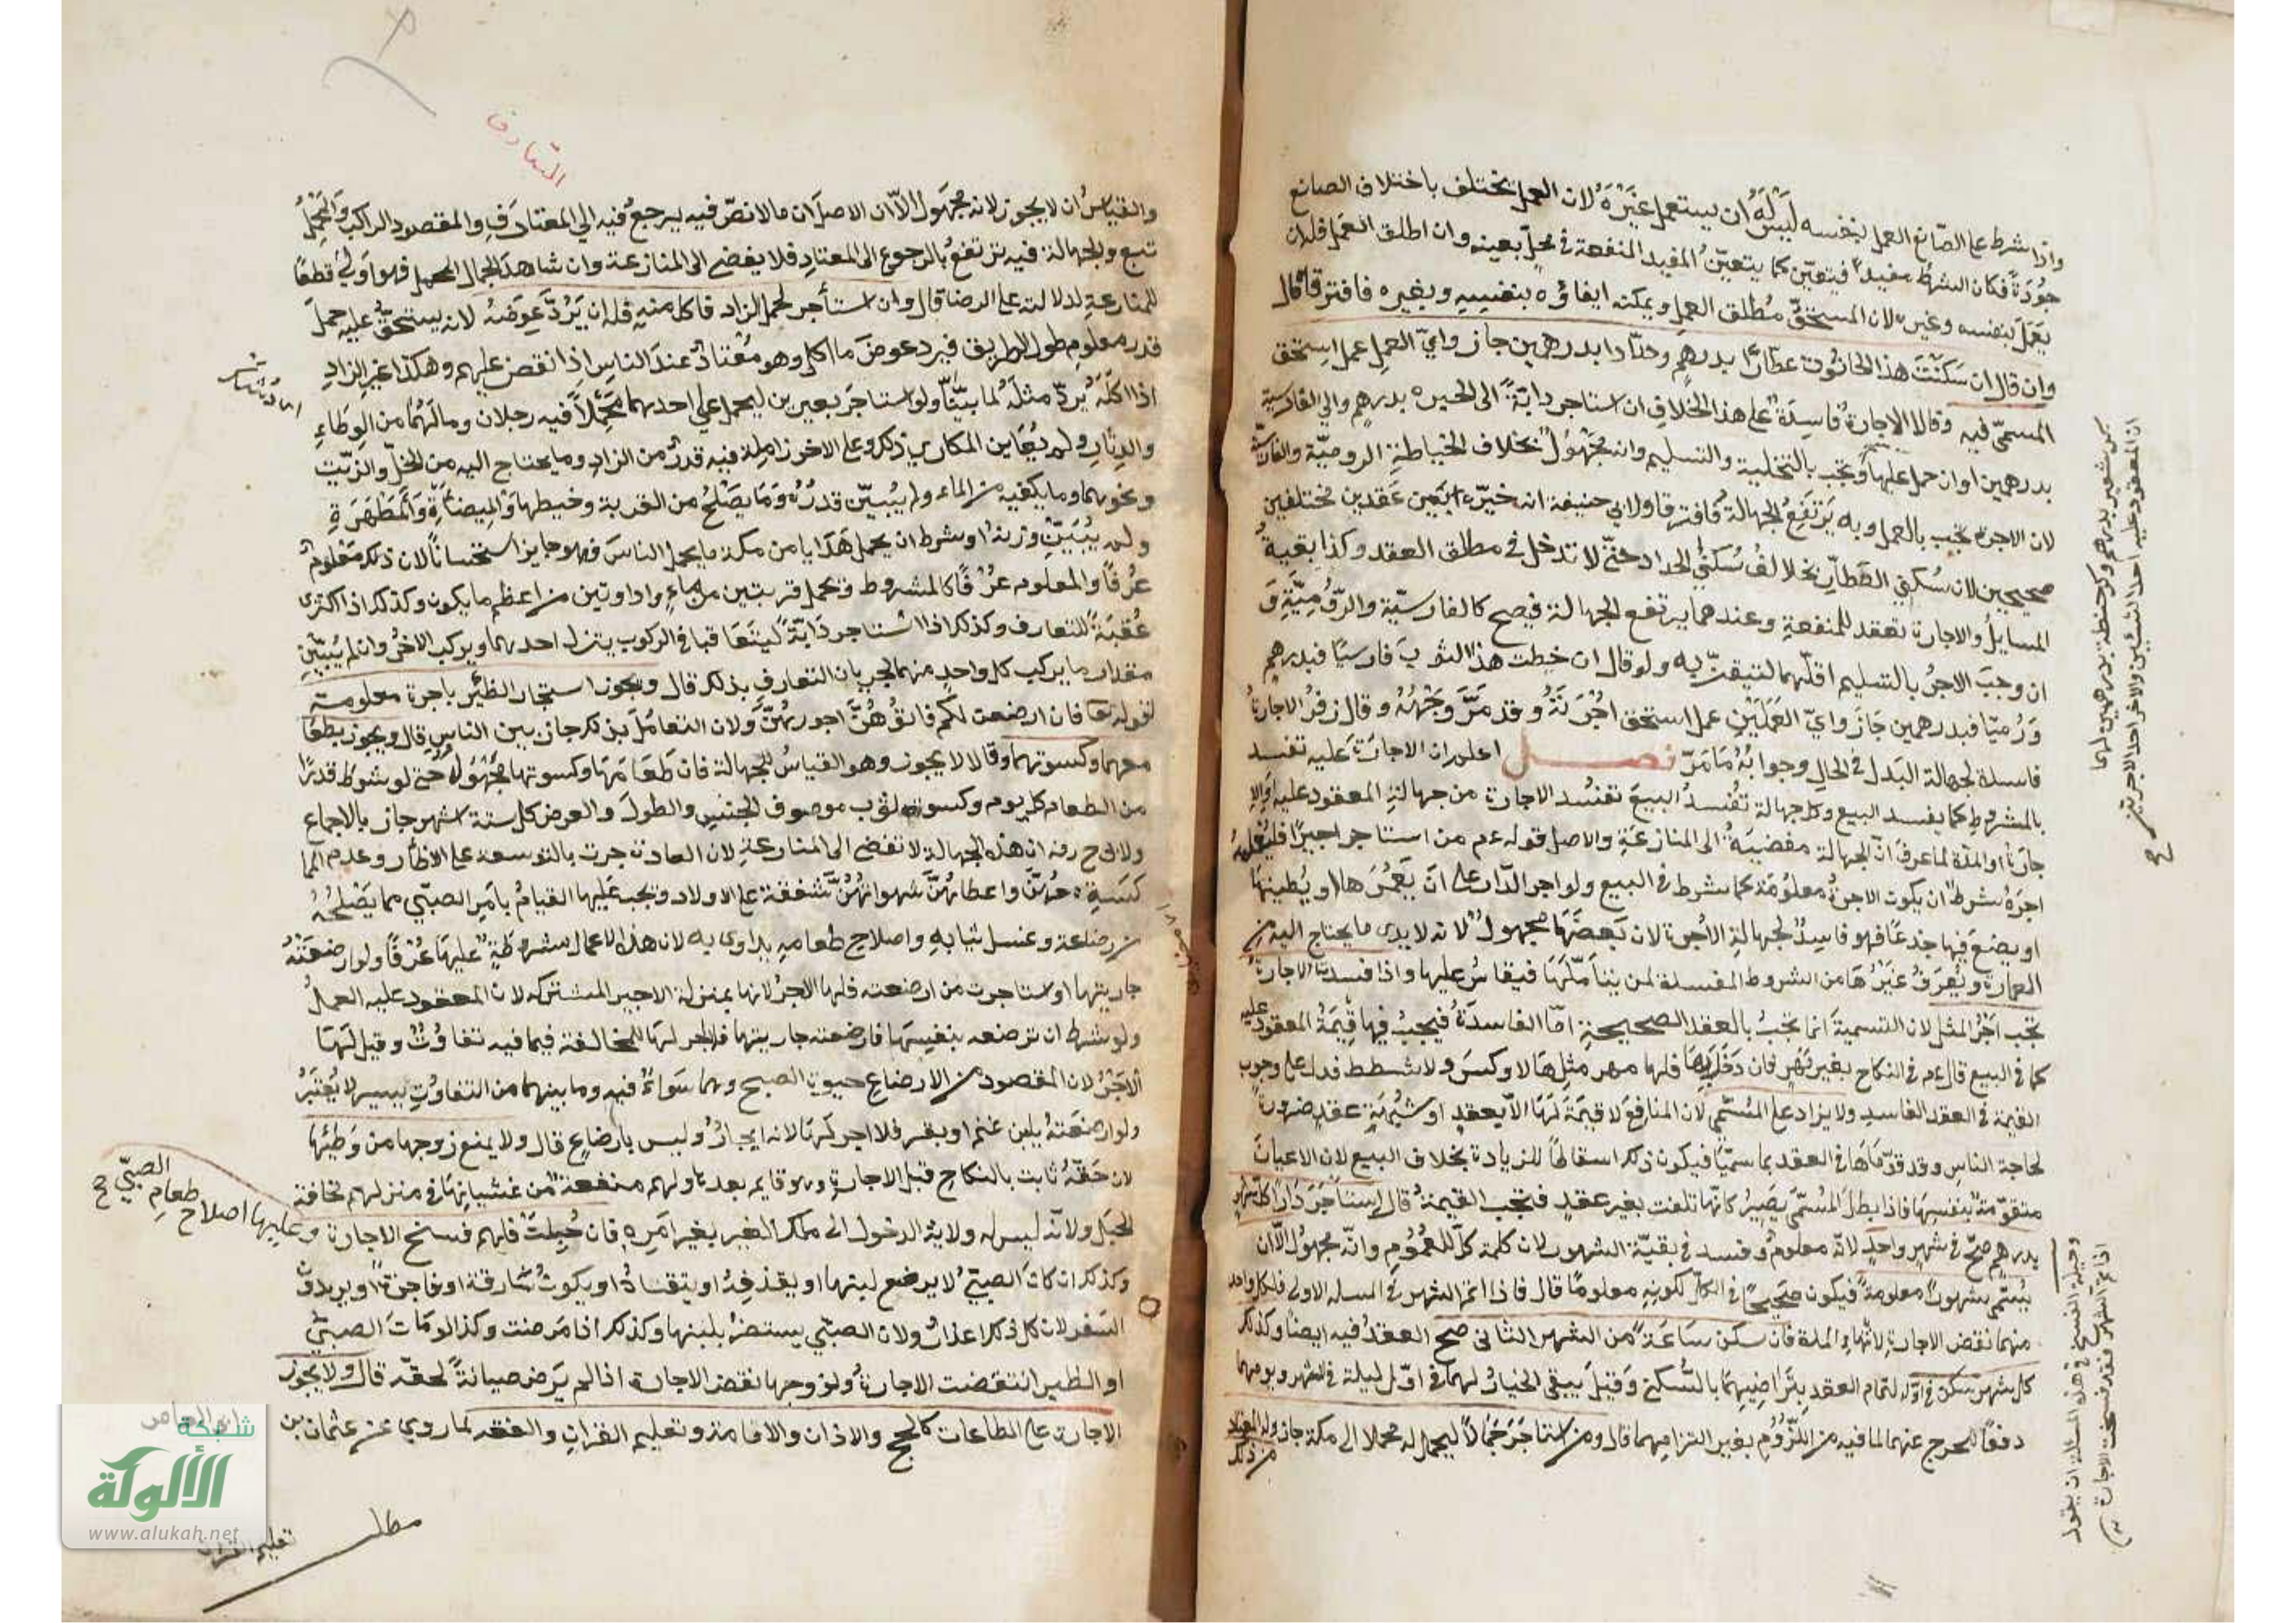 واذا شرط على الصّانع العمل بنفسه لَيْسَ لَهُ ان يستعمل غَيْرَهُ لان العمل يختلف باختلاف الصانع
جُوْدَةً فكان الشرط مفيداً فيتعيّن كما يتعيّن المنفعة في محلّ بعينه وان اطلق العمل فله ان
يعمل بنفسه وغيره لان المستحقّ مُطلق العمل ويمكنه ايفاؤه بنفسه وبغيره فافترقا قال
وان قال ان سَكَنْتَ هذا الحانوت عطّارًا بدرهم وحدّادا بدرهمين جاز وايّ العمل عمل استحق
المسمّى فيه وقالا الاجارة فاسِدة على هذا الخلاف ان استاجر دابّةً الى الحيره بدرهم والى القادسية
بدرهمين او ان حمل عليها وتجب بالتخلية والتسليم وانه مجهول بخلاف الخياطة الروميّة والفارسيّة
لان الاجرة تجب بالعمل وبه يَرْتَفِعُ الجهالة فافترقا ولابي حنيفة انه خيّره بين عَقدين مختلفين
صحيحين لان سُكنى العطّار يخالف سُكنى الحداد حتّى لا تدخل في مطلق العقد وكذا بقية
المسايل والاجارة تعقد للمنفعة وعندهما يرتفع الجهالة فيصح كالفارسيّة والرّوميّة و
ان وجبَ الاجرُ بالتسليم اقلّهما للتيقّن به ولو قال ان خِطت هذا الثوبَ فارسيًا فبدرهم
وَرُوميّا فبدرهمين جَازَ وايّ العَمَلَيْنِ عمل استحق اجْرَتَهُ وقد مَرَّ وَجْهُهُ وقال زفرُ الاجارةُ
فاسدة لجهالة البَدل في الحال وجوابُهُ مَا مَرّ فصل اعلم ان الاجارَةَ تفسد
بالشروط كما يفسد البيع وكل جهالة تُفْسِدُ البيعَ تفسُد الاجارة من جهالة المعقود عليه والا
جارة او المدّة لما عرفَ انّ الجهالة مفضيَة الى المنازعَةِ والاصل قوله عم من استاجر اجيرًا فليُعلمهُ
اجرَهُ شرطَ ان يكون الاجرةُ معلُومَة كما شرط في البيع ولو اجر الدّار على انّ يَعْمُرَها او يُطينَها
او يضعَ فيها جذعًا فهو فاسِدٌ لجهالة الأجرة لان بَعضَهَا مجهولٌ لانه لا يدرى ما يحتاج اليه من
العمارة ويُعرَفُ غَيْرُها من الشروط المفسدة لمن يتأمّلَهَا فيقاسُ عليها واذا فسدت الاجارةُ
تجب اجرُ المثل لان التسميةَ انما تجبُ بالعقد الصحيحة امّا الفاسدَةُ فيجبُ فيها قيمَةُ المعقود عليه
كما في البيع قال عم في النكاح بغير مَهْرٍ فان دَخَلَ بِهَا فلها مهر مثلِهَا لا وكسَ ولا شطط فدل على وجوب
القيمة في العقد الفاسد ولا يزاد على المُسَمَّى لان المنافعَ لا قيمَةَ لَهَا الاّ بعقدٍ او شُبْهَةِ عقدٍ ضرورة
لحاجة الناس وقد قدّمَاهَا في العقد بما سمّيَا فيكون ذلك اسقاطًا للزيادة بخلاف البيع لان الاعيانَ
متقوّمة بنفسِهَا فاذا بطلَ المُسَمَّى يَصيرُ كانّها تلفت بغير عقدٍ فتجب القيمةُ قال استأجَرَ دَارًا كلّ شهرٍ
بدرهم صحّ في شهرٍ واحدٍ لانّه معلوم وفسد في بقيّة الشهور لان كلمةَ كلّ للعُمُومِ وانّه مجهول الاّ ان
يُسَمِّى شهورًا معلومة فيكون صَحِيحًا في الكلّ لكونه معلومًا قال فاذا تم الشهر في المسله الاولى فلكل واحد
منهما نقض الاجارة لانتهاء المدة فان سكن سَاعَةً من الشهر الثانى صح العقد فيه ايضًا وكذلك
كل شهر سكن في اوّله لتمام العقد بِتَراضيهِمَا بالسُّكنى وقيل يبقى الخيارُ لهما في اوّل ليلة في الشهر ويومها
دفعًا للحرج عنهما لما فيه من اللُّزُومِ بغير التزامهما قال ومن استاجَرَ جَمَلًا ليحمل له محملا الى مكة جاز وله المعتاد
من ذلك
بكر شعير بدرهم وكر حنطة بدرهمين لهما
ان المعقود عليه احد الشيئين والاخر احد الاجرين
صح
وحيلة الفسخ في هذه المسئلة ان يقول
اذا تم الشهر فقد فسخت الاجارة
التعارف
والقياسُ ان لا يجوز لانه مجهول الاّ ان الاصلَ ان ما لا نصّ فيه يرجعُ فيه الى المعتادِ والمقصود الراكب وَالمَحْمِلُ
تبع والجهالة فيه ترتفعُ بالرجوع الى المعتاد فلا يفضى الى المنازعة وان شاهد الجمال المحمل فهو اَولى قطعًا
للمنازعة لدلالته على الرضا قال وان استأجر لحمل الزاد فاكل منه فله ان يَرُدَّ عِوَضَهُ لانه يستحقّ عليه حملَ
قدر معلوم طول الطريق فيرد عوضَ ما اكل وهو مُعْتادٌ عندَ الناس اذا نقص عليهم وهكذا غير الزادِ
اذا اكلهُ يُردّ مثلَهُ لما بيّنّا ولو استاجَر بعيرين ليحمل على احدهما محمِلاً فيه رجلان وما لَهُمَا من الوِطاءِ
والدِثارِ ولم يُعَاين المكاري ذلك وعلى الاخر زاملة فيه قدرٌ من الزاد وما يحتاج اليه من الخلّ والزيّت
ونحوهما وما يكفيه من الماء ولم يُبيّن قدرُهُ وَمَا يَصْلُحُ من القربة وخيطها وَالمِيضأَةِ والمَطهَرَةِ
ولم يُبَيِّن وزنهُ او شرط ان يحمل هَدَايا من مكة ما يحمل الناسَ فهو جايز استحسانًا لان ذلك مَعْلومٌ
عُرْفًا والمعلوم عرْفًا كالمشروط وتحمل قربتين من ماءٍ واداوتين من اعظم ما يكون وكذلك اذا اكترى
عُقْبَةً للتعارف وكذلك اذا استاجر دَابّةً ليَتَعَاقبا في الركوب ينزل احدهما ويركب الاخر وان لم يُبَيّنْ
مقدار ما يركب كل واحدٍ منهما لجريان التعارف بذلك قال ويجوز استيجار الظئر باجرة معلومة
لقوله تعا فان ارضعن لكم فاتوهُنَّ اجورهُنَّ ولان التعامُلَ بذلك جاز بين الناس قال ويجوز بطعا
مهما وكسوتهما وقالا لا يجوز وهو القياسُ للجهالة فان طعَامَهَا وكسوتها مَجْهُولٌ حتى لو شرط قدرًا
من الطعام كل يوم وكسوة ثوب موصوف الجنس والطولَ والعرض كل ستة اشهر جاز بالاجماع
ولابى ح رضه ان هذه الجهالة لا تفضى الى المنازعة لان العادة جرت بالتوسعة على الاظار وعدم المما
كسةِ معهُنّ واعطائهُنَّ شهواتهُنَّ شفقة على الاولاد وتجب عَليها القيامُ بامرِ الصبّي مما يَصْلحُهُ
من رضاعة وغسل ثيابه واصلاح طعامه يداوى به لان هذه الاعمال مشروطةٌ عليهَا عُرْفًا ولو ارضعَتْهُ
جاريتها او استاجرت من ارضعته فلها الاجرُ لانها بمنزلة الاجير المشترك لان المعقود عليه العملُ
ولو شرط ان ترضعه بنفسِهَا فارضعته جاريتها فلا اجر لهَا للمخالفة فيما فيه تفاوُتٌ وقيل لَهَا
الاجرُ لان المقصود من الارضاع حيوة الصبي وهما سَوَاءٌ فيه وما بينهما من التفاوُت يسير لا يُعْتَبَرُ
ولو ارضعَتْهُ بلبن غنم او بقر فلا اجر لهَا لانه ايجارٌ وليس بارضاعٍ قال ولا يمنع زوجها من وَطئِهَا
لان حَقّهُ ثابت بالنكاح قبل الاجارةِ وهو قايم بعدها ولهم منعهُ من غشيانِهَا في منزلهم مخافة
للحَبَل ولانّه ليس له ولاية الدخول الى ملك الغير بغير امرِهِ فان حُبِلَتْ فلهم فسخ الاجارة وعليها اصلاح طعام الصبّي صح
وكذلك ان كانَ الصبيّ لا يرضع لبنها او يقذفِهُ او يتقيّاهُ او يكونُ سَارقة او فاجرَةً او يريدونَ
السّفر لان كل ذلك اعذارٌ ولان الصبّي يستضرّ بلبنها وكذلك اذا مَرضت وكذا لو مَاتَ الصبيّ
او الظئير انتقضت الاجارةُ ولزوجها نقض الاجارة اذا لم يَرض صيانةً لحقّه قال ولا يجوز
الاجارة على الطاعات كالحج والاذان والاقامة وتعليم القران والفقه لما روى عن عثمان بن
ابى العاص
مطلب
تعليم القران
شبكة
الألوكة
www.alukah.net